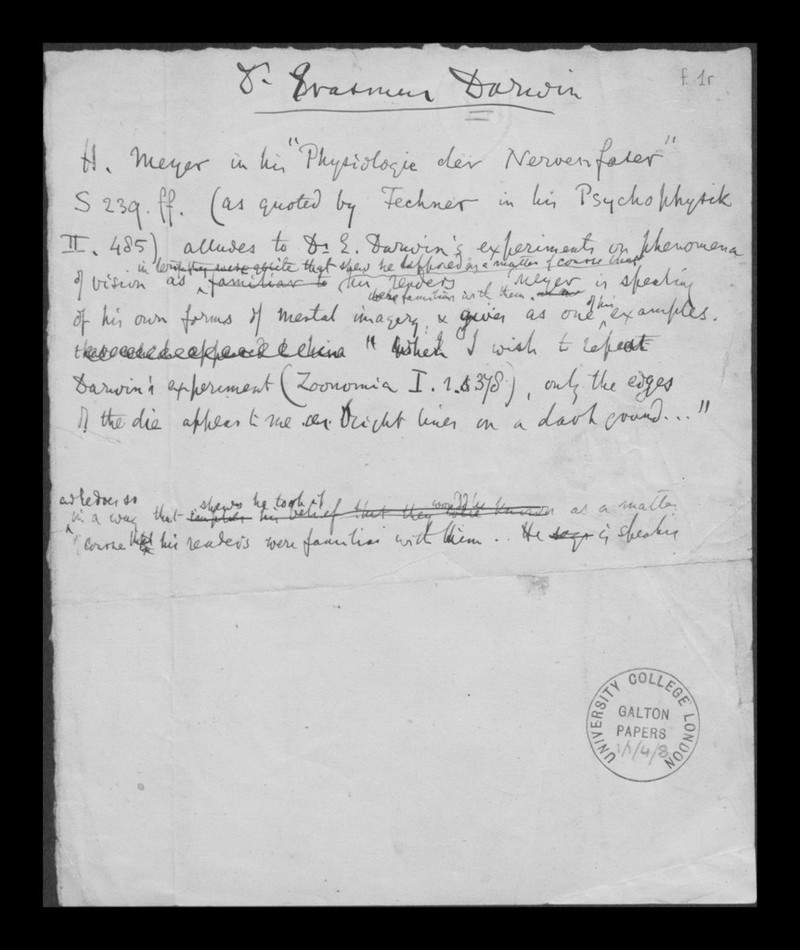 Dr Erasmus Darwin
f. 1r
H. Meyer in his "Physiologie der Nervenfaser"
S 239. ff. (as quoted by Fechner in his Psychophysik
II. 485) alludes to Dr E. Darwin's experiments on phenomena
in quite that shew he supposed as a matter of course that
of vision as familiar to his readers Meyer is speaking
were familiar with them.
of his own forms of mental imagery, & gives as one of his examples.
"When I wish to repeat
Darwin's experiment (Zoonomia I. 378), only the edges
of the die appear to me as bright lines on a dark ground..."
shews he took it
in a way that implies his belief that they would be known as a matter
of course that his readers were familiar with them.. He says is speaking
UNIVERSITY COLLEGE LONDON
GALTON
PAPERS